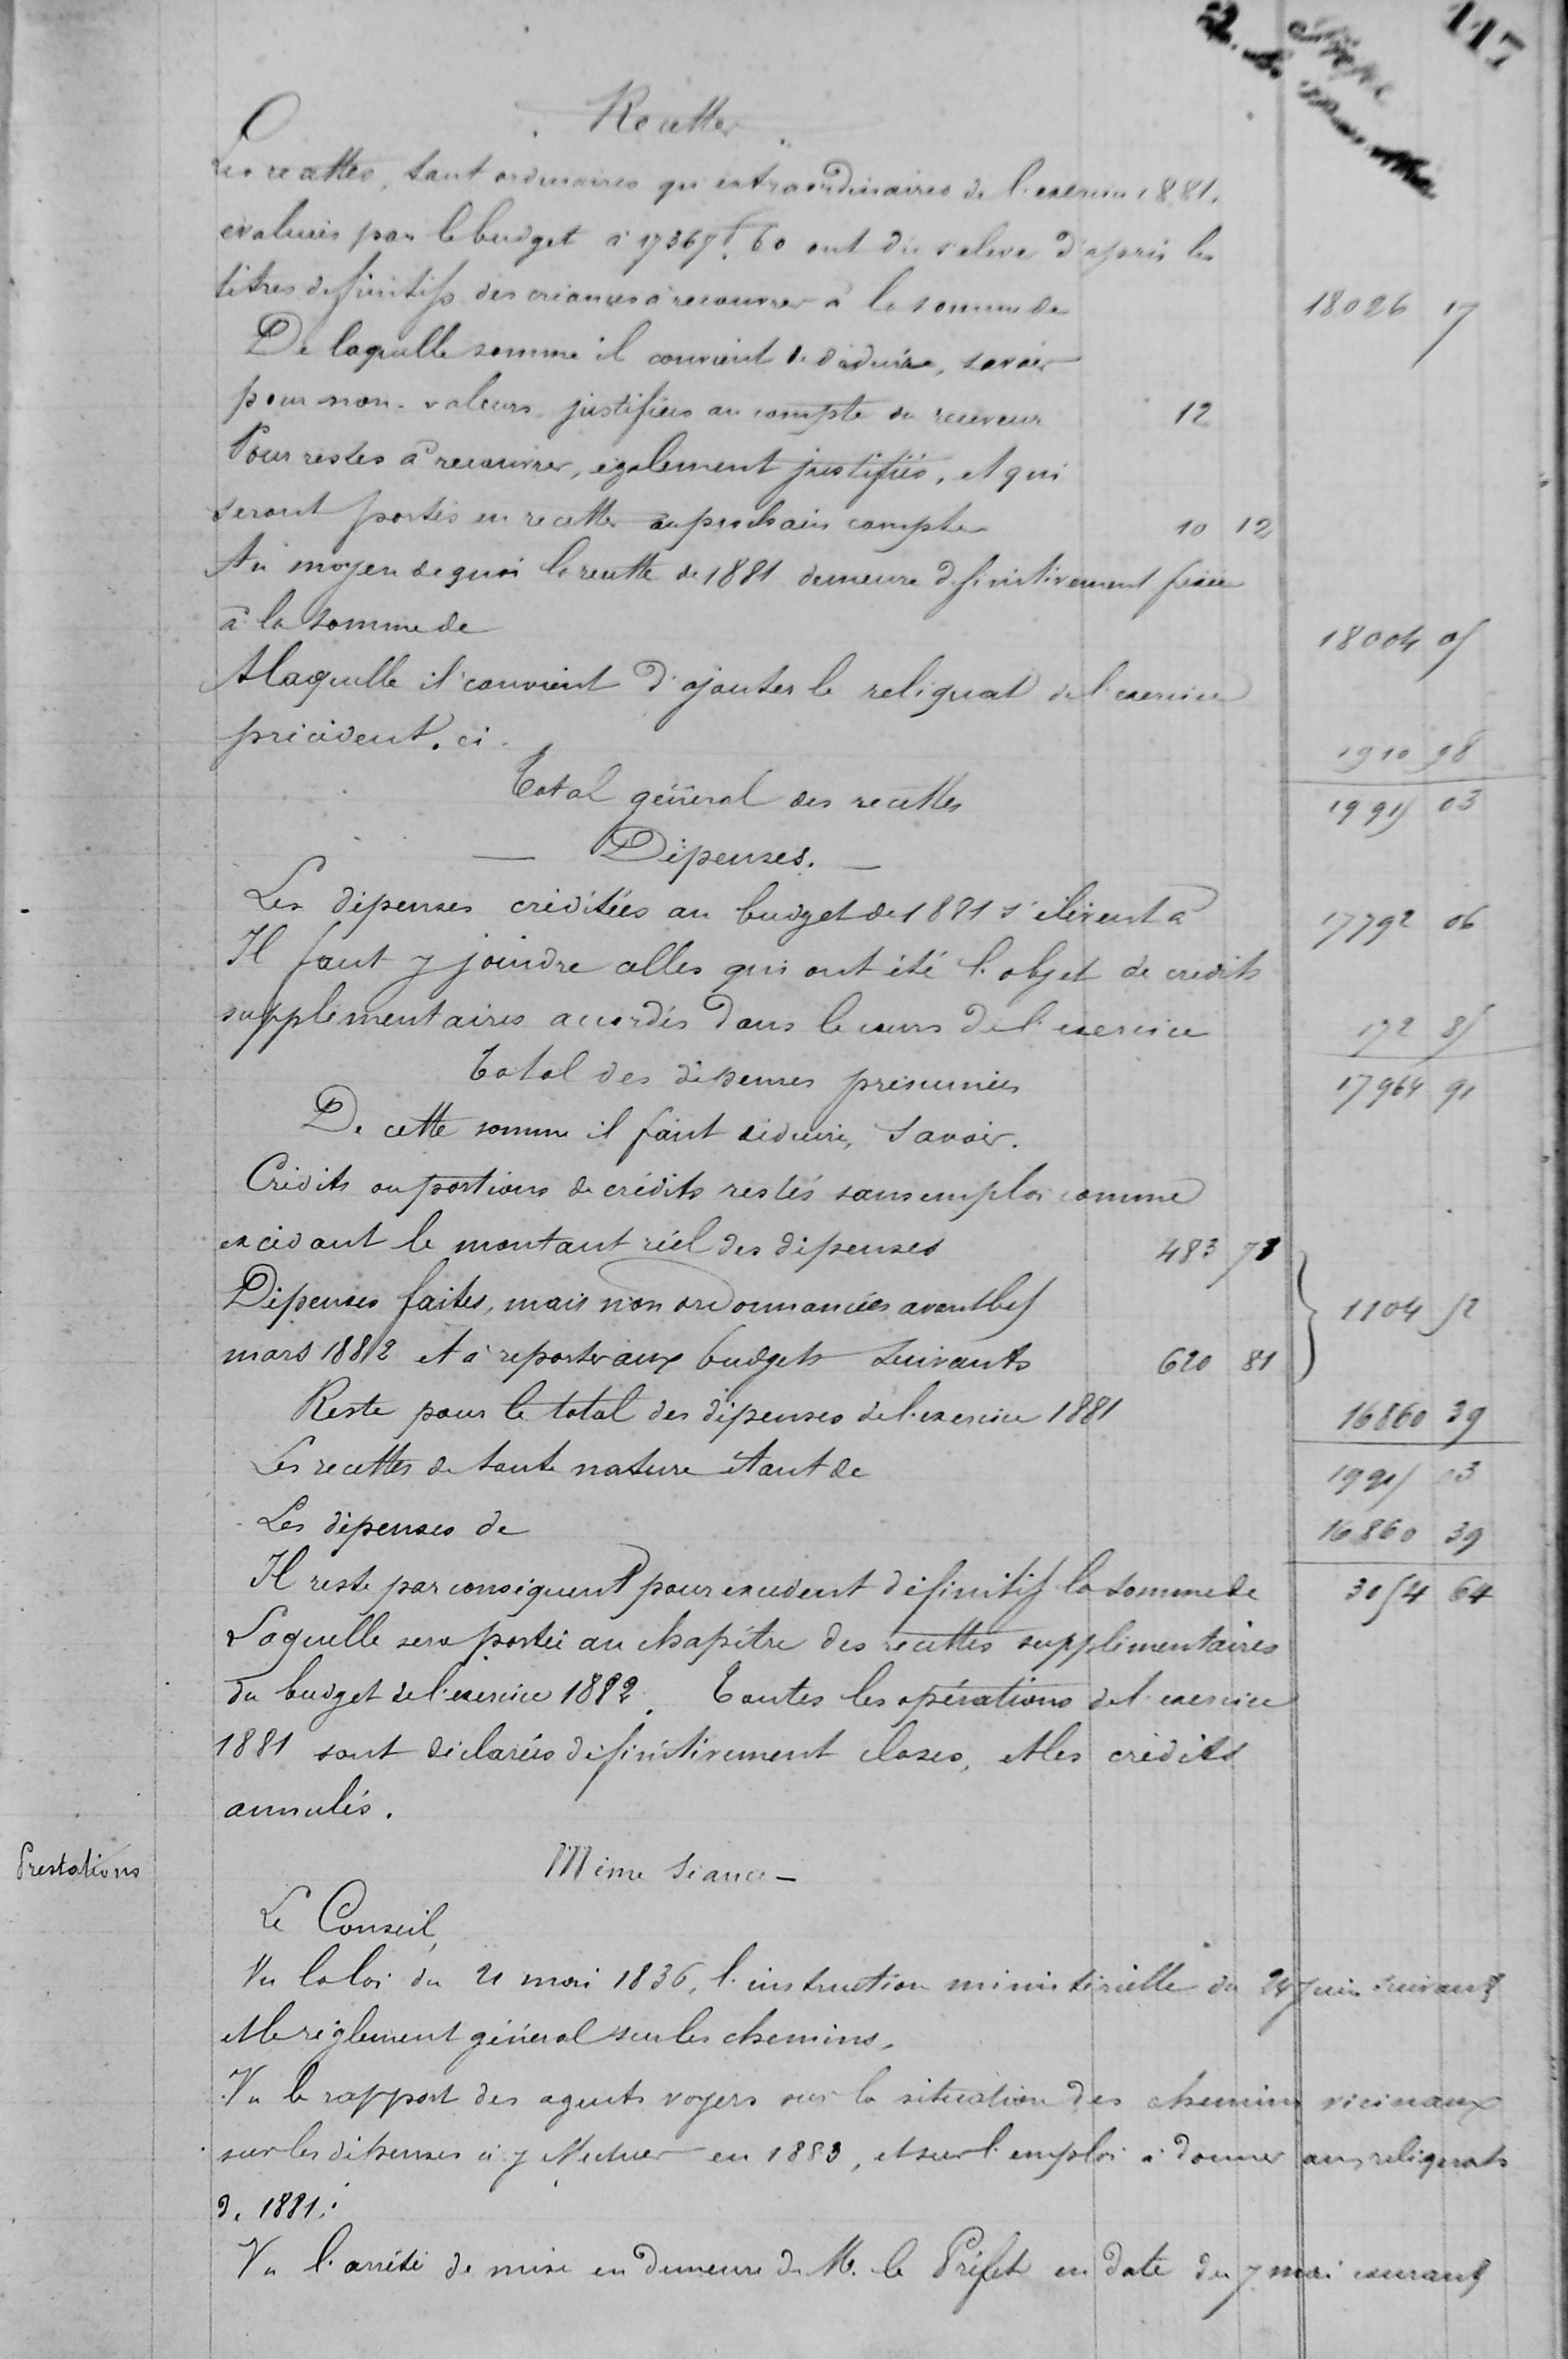 117
Recettes
Les recettes, tant ordinaires qu'extraordinaires de l'exercice 1881,
évaluées par le budget à 17367f,60 ont dû s'élever d'après les
titres définitifs des créances à recouvrer à la somme de 18026 17
De laquelle somme il convient de déduire, savoir
pour non-valeurs justifiées au compte du receveur 12
Pour restes à recouvrer, également justifiés, et qui
seront portés en recettes au prochain compte 10 12
Au moyen de quoi la recette de 1881 demeure définitivement fixée
à la somme de 18004 05
A laquelle il convient d'ajouter le reliquat de l'exercice
précédent. ci. 1910 98
Total général des recettes 19915 03
Dépenses.
Les dépenses créditées au budget de 1881 s'élèvent à 17792 06
Il faut y joindre celles qui ont été l'objet de crédits
supplémentaires accordés dans le cours de l'exercice 172 85
Total des dépenses présumées 17964 91
De cette somme il faut déduire, savoir.
Crédits ou portions de crédits restés sans emploi comme
excédant le montant réel des dépenses 483 71
Dépenses faites, mais non ordonnancées avant le 15
mars 1882 et à reporter aux budgets suivants 620 81 } 1104 52
Reste pour le total des dépenses de l'exercice 1881 16860 39
Les recettes de toute nature étant de 19915 03
Les dépenses de 16860 39
Il reste par conséquent pour excédent définitif la somme de 3054 64
Laquelle sera portée au chapitre des recettes supplémentaires
du budget de l'exercice 1882. Toutes les opérations de l'exercice
1881 sont déclarées définitivement closes, et les crédits
annulés.
Prestations
Même séance -
Le Conseil,
Vu la loi du 21 mai 1836, l'instruction ministérielle du 24 juin suivant
et le règlement général sur les chemins,
Vu le rapport des agents voyers sur la situation des chemins vicinaux
sur les dépenses à y effectuer en 1883, et sur l'emploi à donner aux reliquats
de 1881;
Vu l'arrêté de mise en demeure de M. le Préfet en date du 7 mai courant